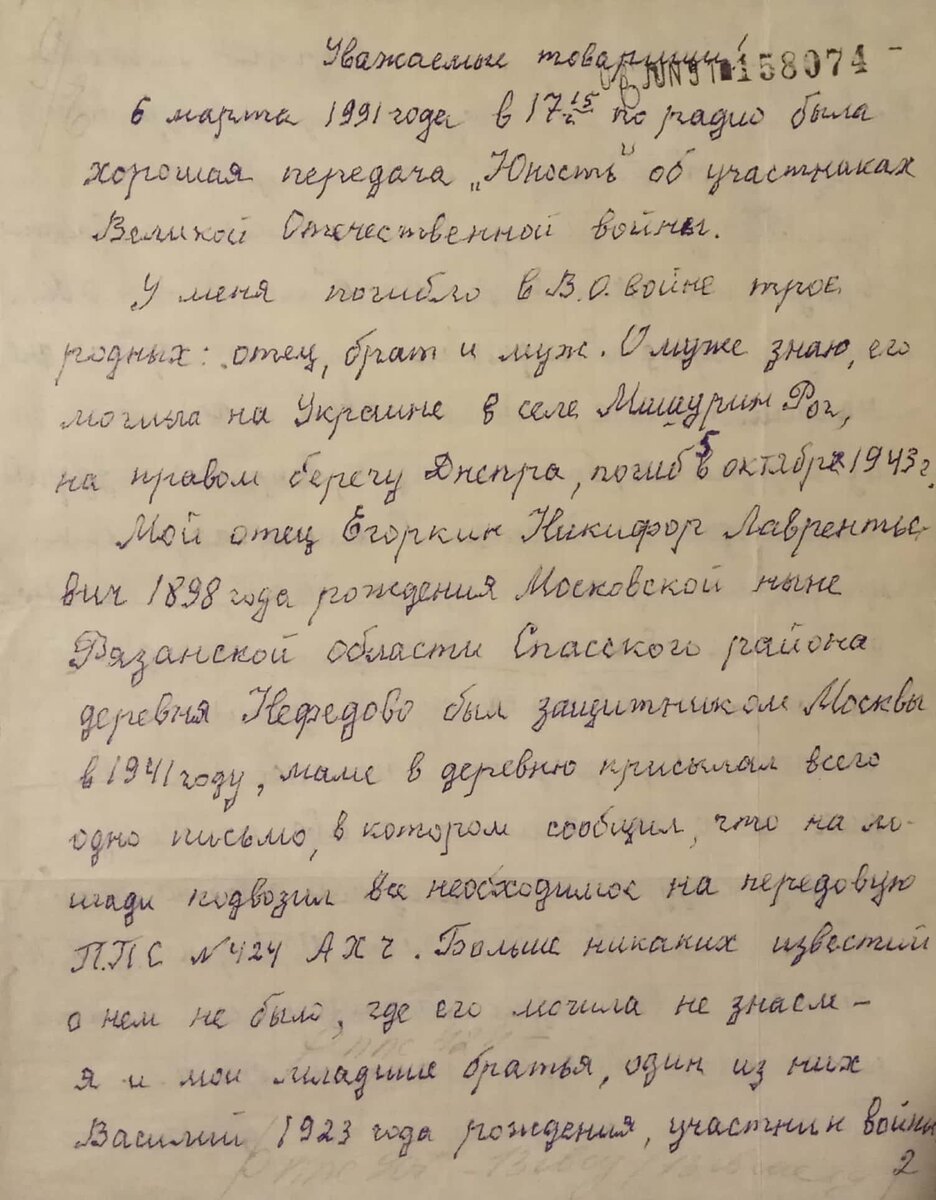 Уважаемые товарищи!
06 JUN 91 158074
6 марта 1991 года в 17 15 ч по радио была
хорошая передача „Юность" об участниках
Великой Отечественной войны.
У меня погибло в В.О. войне трое
родных: отец, брат и муж. О муже знаю, его
могила на Украине в селе Мишурин Рог,
на правом берегу Днепра, погиб 5 октября 1943 г.
Мой отец Егоркин Никифор Лаврентье-
вич 1898 года рождения Московской ныне
Рязанской области Спасского района
деревня Нефедово был защитником Москвы
в 1941 году, маме в деревню присылал всего
одно письмо, в котором сообщил, что на ло-
шади подвозил все необходимое на передовую
П.П.С №424 АХЧ. Больше никаких известий
о нем не было, где его могила не знаем –
я и мои младшие братья, один из них
Василий 1923 года рождения, участник войны
2